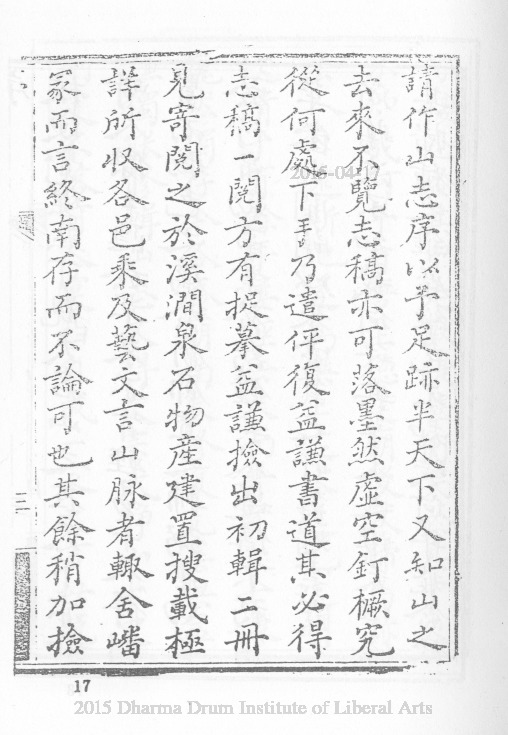 請作山志序以予足跡半天下又知山之
去來不覽志稿亦可落墨然虛空釘橛究
從何處下手乃遣伻復益謙書道其必得
志稿一閱方有捉摹益謙撿出初輯二冊
見寄閱之於溪澗泉石物產建置搜載極
詳所収各邑乘及藝文言山脉者輙舍嶓
冢而言終南存而不論可也其餘稍加撿
三
17
2015-04-17
2015 Dharma Drum Institute of Liberal Arts